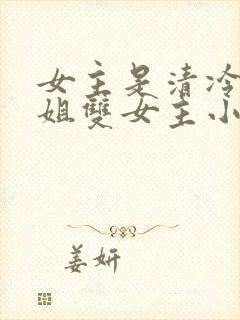 女主是清冷
姐雙女主小
姜妍